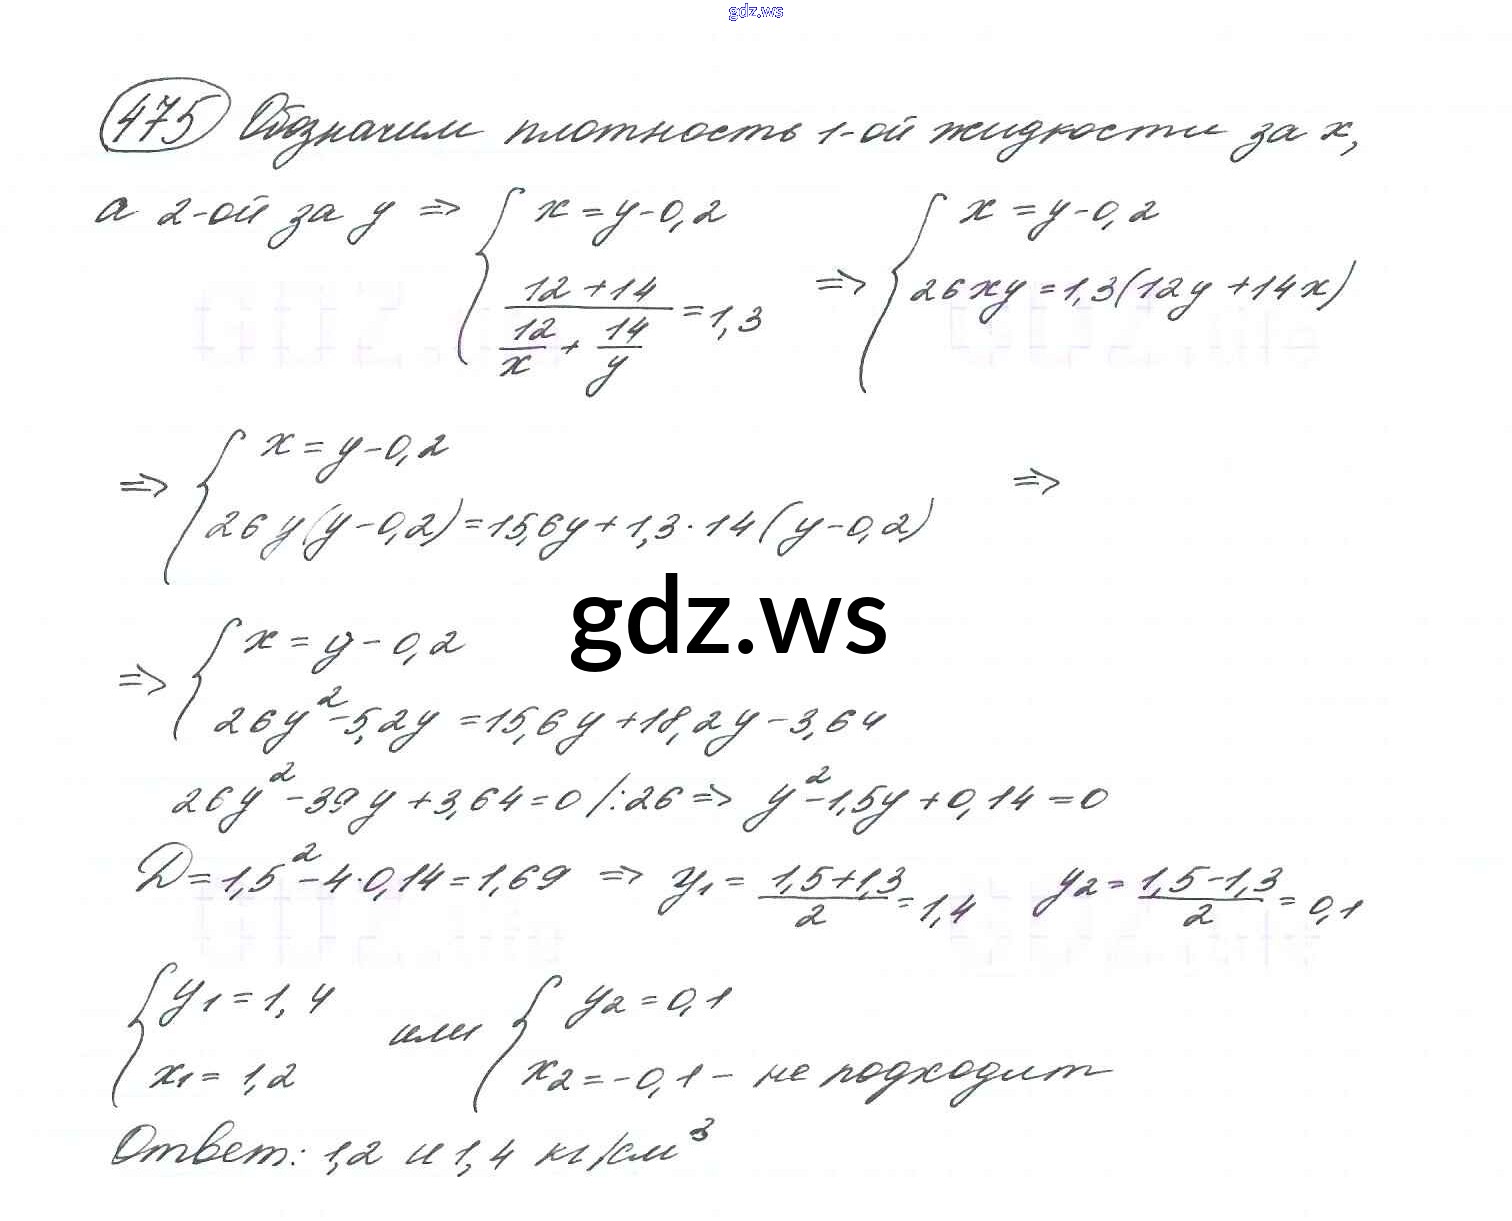 gdz.ws
475 Обозначим плотность 1-ой жидкости за x,
а 2-ой за y ⇒ { x = y - 0,2 ; (12 + 14) / (12/x + 14/y) = 1,3 ⇒ { x = y - 0,2 ; 26xy = 1,3(12y + 14x)
⇒ { x = y - 0,2
26y(y - 0,2) = 15,6y + 1,3 · 14(y - 0,2) ⇒
gdz.ws
⇒ { x = y - 0,2
26y² - 5,2y = 15,6y + 18,2y - 3,64
26y² - 39y + 3,64 = 0 /:26 ⇒ y² - 1,5y + 0,14 = 0
D = 1,5² - 4·0,14 = 1,69 ⇒ y₁ = (1,5 + 1,3)/2 = 1,4 y₂ = (1,5 - 1,3)/2 = 0,1
{ y₁ = 1,4 ; x₁ = 1,2 или { y₂ = 0,1 ; x₂ = -0,1 - не подходит
Ответ: 1,2 и 1,4 кг/см³